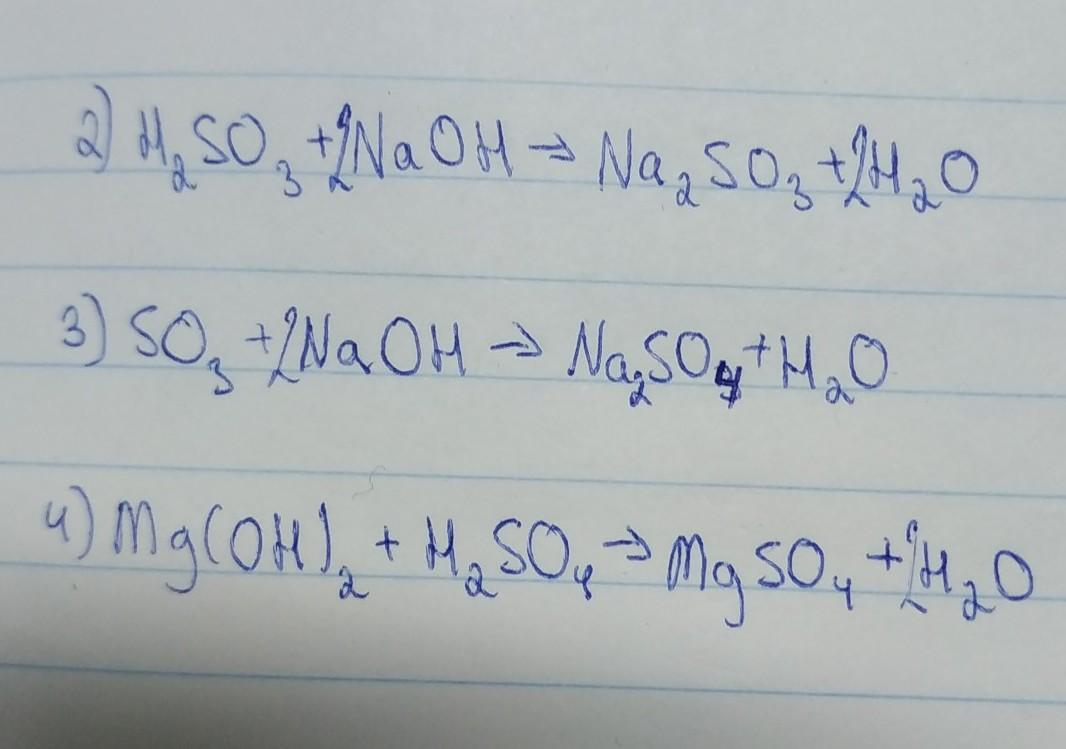 2) H₂SO₃ + 2NaOH → Na₂SO₃ + 2H₂O
3) SO₃ + 2NaOH → Na₂SO₄ + H₂O
4) Mg(OH)₂ + H₂SO₄ → MgSO₄ + 2H₂O